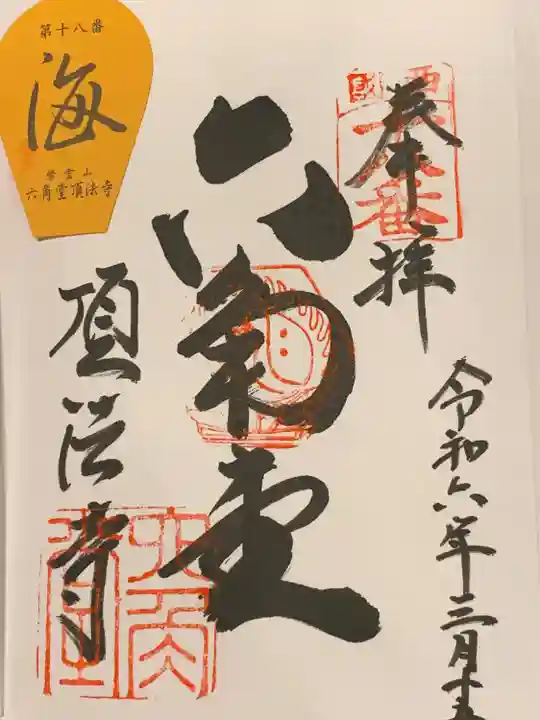 奉拝
令和六年三月十五
六角堂
頂法寺
第十八番
海
紫雲山
六角堂頂法寺
六角堂